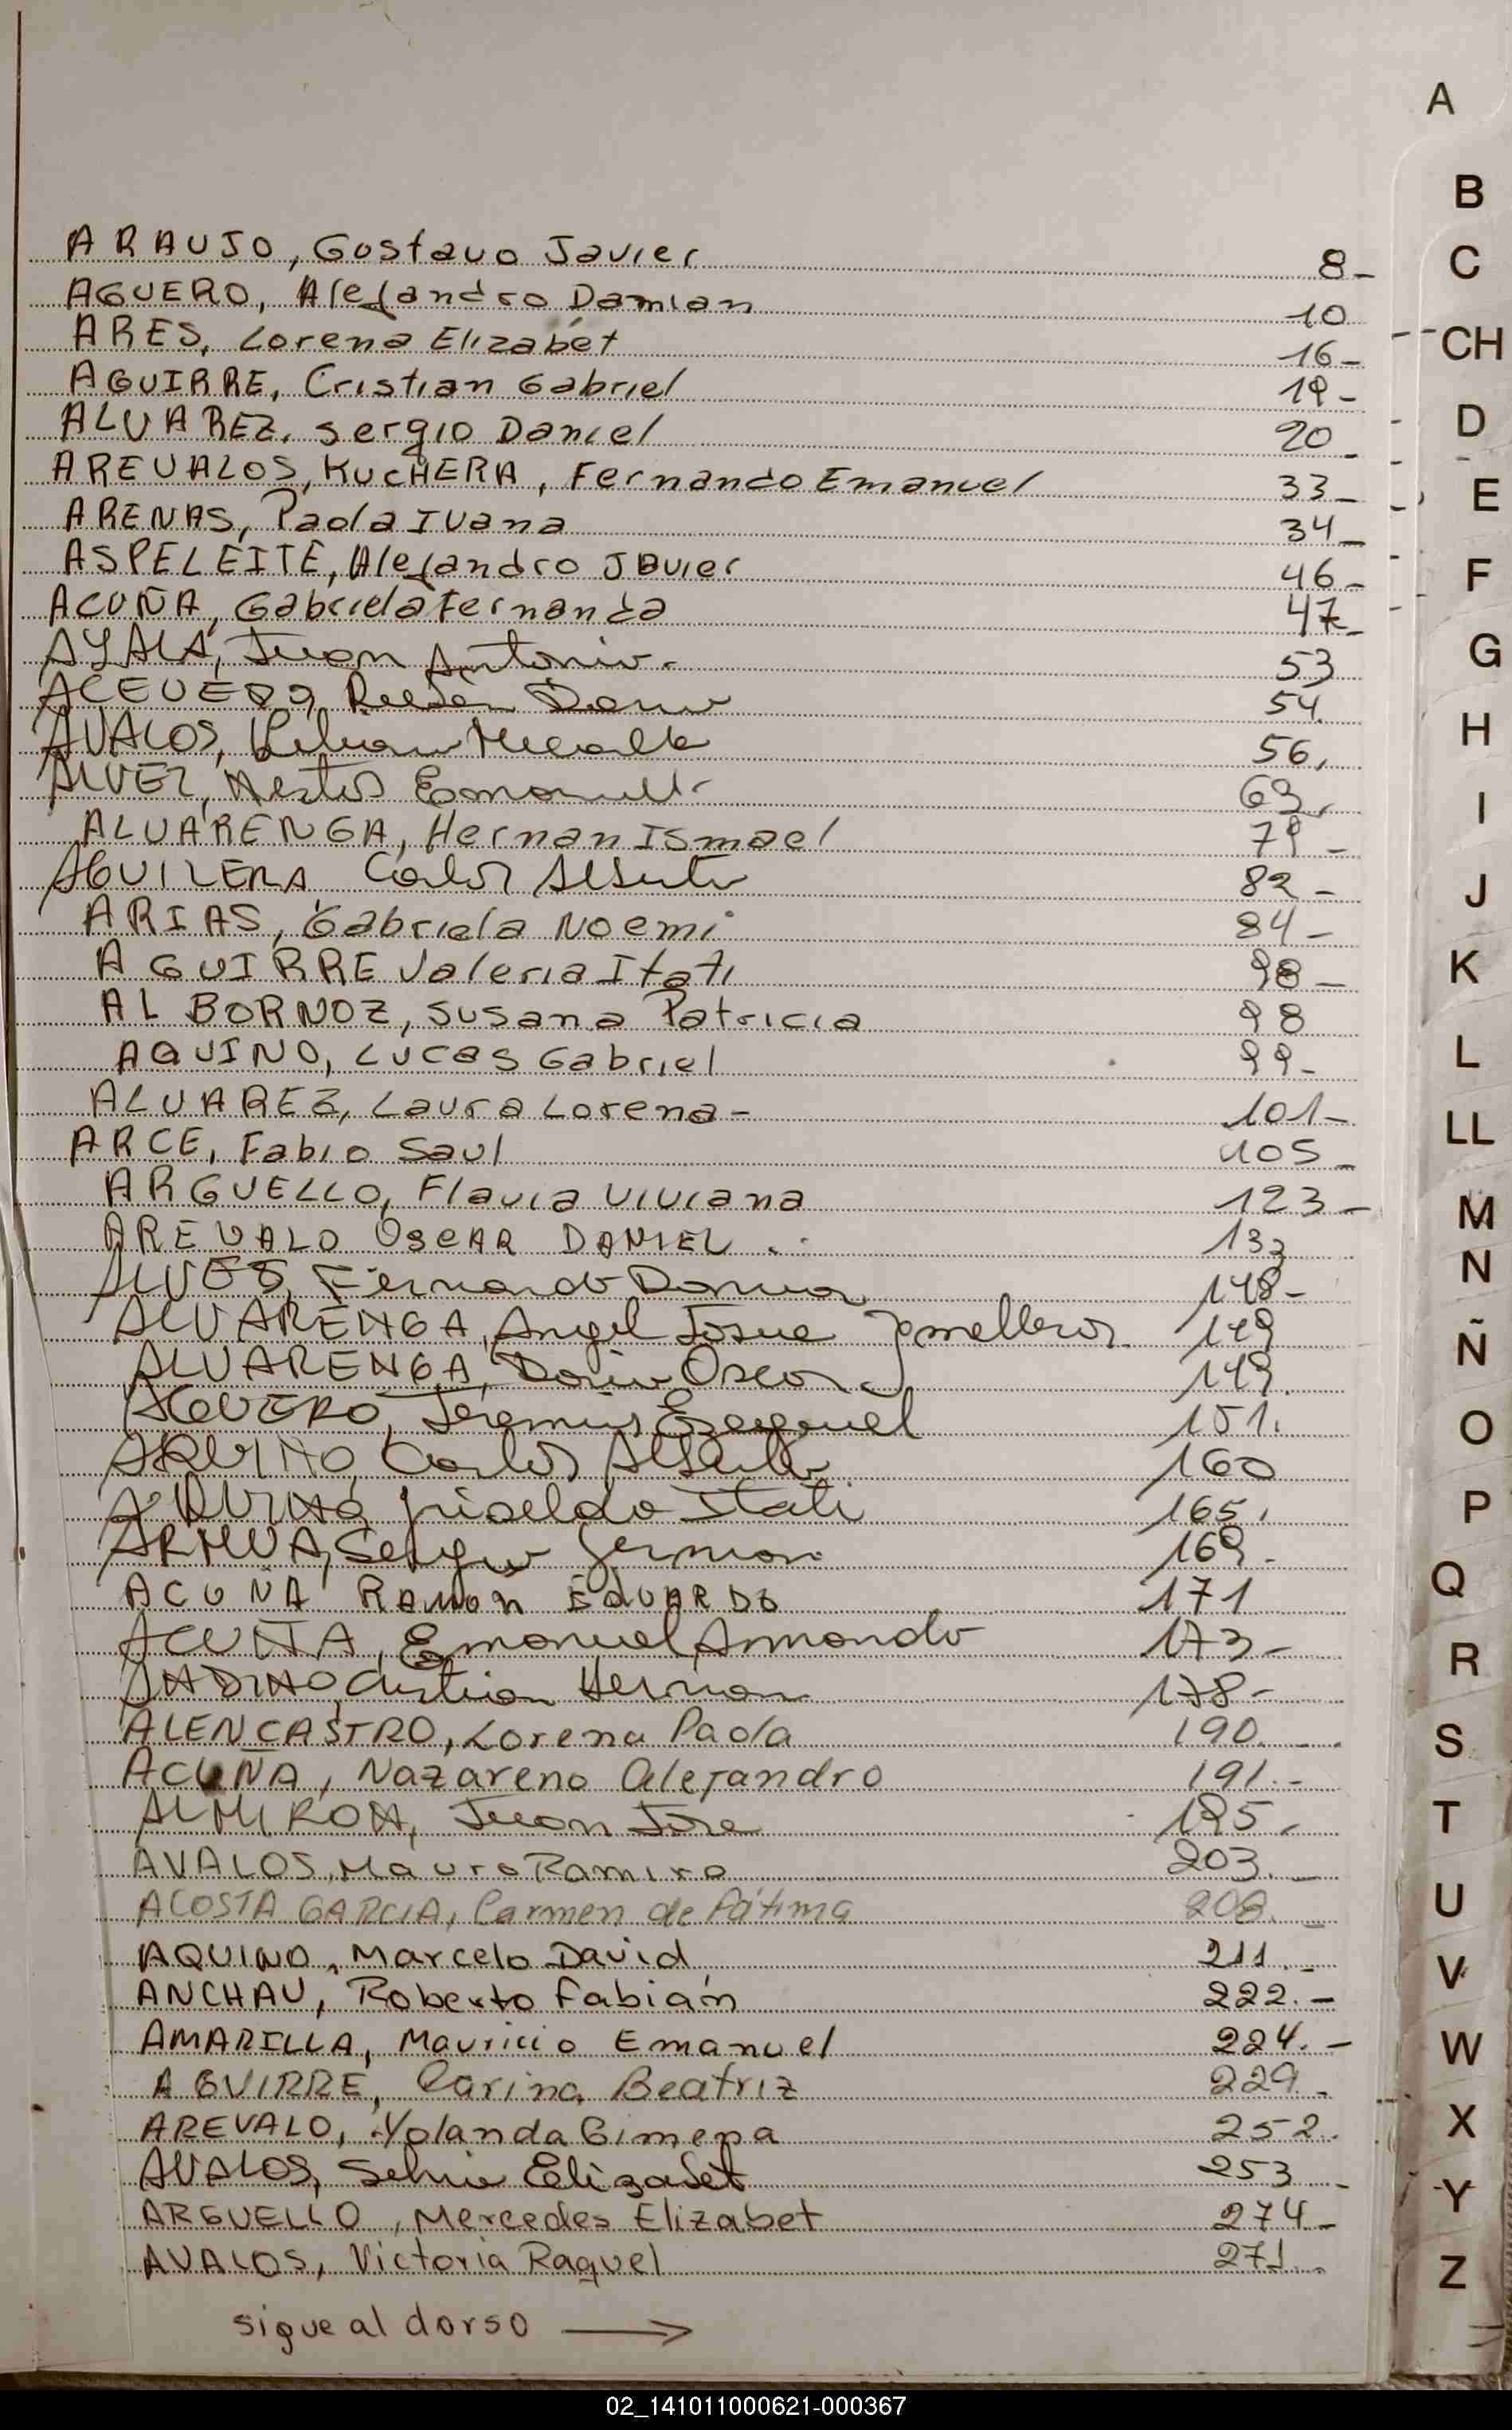 A
B
C
CH
D
E
F
G
H
I
J
K
L
LL
M
N
Ñ
O
P
Q
R
S
T
U
V
W
X
Y
Z
ARAUJO, Gostavo Javier 8-
AGUERO, Alejandro Damian 10
ARES, Lorena Elizabét 16-
AGUIRRE, Cristian Gabriel 19-
ALVAREZ, sergio Daniel 20
AREVALOS, KUCHERA, Fernando Emanuel 33-
ARENAS, Paola Ivana 34-
ASPELEITE, Alejandro Javier 46-
ACUÑA, Gabriela Fernanda 47-
AYALA, Juan Antonio. 53
ACEVEDO, Rubén 54
AVALOS, Micaela 56.
ALVEZ, Nestor Emanuel. 69.
ALVARENGA, Hernan Ismael 79-
AGUILERA Carlos Alberto 82-
ARIAS, Gabriela Noemi 84-
AGUIRRE Valeria Itati 98-
ALBORNOZ, Susana Patricia 98
AQUINO, Lucas Gabriel 99-
ALVAREZ, Laura Lorena- 101-
ARCE, Fabio Saul 105-
ARGUELLO, Flavia Viviana 123-
AREVALO OSCAR DANIEL 133
ALVES, Fernando 148-
ALVARENGA, Angel Josue 149
ALVARENGA, Dario Oscar 149.
AGUERO, Jeremias Ezequiel 151.
Carlos Alberto 160
Griselda Itati 165.
Sergio German 169.
ACUÑA RAMON EDUARDO 171
ACUÑA, Emanuel Armando 173-
Cristian Hernan 178-
ALENCASTRO, Lorena Paola 190.-
ACUÑA, Nazareno Alejandro 191.-
ALMIRON, Juan Jose 195.
AVALOS, Mauro Ramiro 203.-
ACOSTA GARCIA, Carmen de Fátima 208.-
AQUINO, Marcelo David 211.-
ANCHAU, Roberto Fabián 222.-
AMARILLA, Mauricio Emanuel 224.-
AGUIRRE, Carina Beatriz 229.-
AREVALO, Yolanda Gimena 252.
AVALOS, Silvia Elizabet 253-
ARGUELLO, Mercedes Elizabet 274-
AVALOS, Victoria Raquel 271.-
sigue al dorso →
02_141011000621-000367